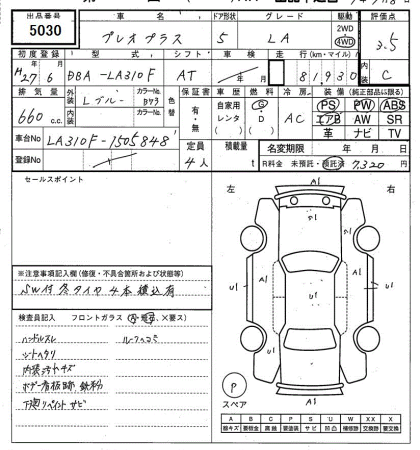 出品番号 車名 ドア形状 グレード 駆動 評価点
5030 プレオプラス 5 LA 2WD 4WD 3.5
初度登録 型式 シフト 車検 走行(km・マイル) 内装
H27年6月 DBA-LA310F AT 年 月 81,930 C
排気量 外装 カラーNo. 色替 保証書 車歴 燃料 冷房 装備(純正部品に限る)
660c.c. Lブルー B43 有・無 自家用 レンタ ( ) G・D ( ) AC PS PW ABS
内装 カラーNo. エアB AW SR
革 ナビ TV
車台No LA310F-1505848 定員 積載量 名変期限 年 月 日
登録No 4人 t R料金 未預託・預託済 7,320円
セールスポイント
左 右
A1
※注意事項記入欄(修復・不具合箇所および状態等)
SW付冬タイヤ4本積込有
検査員記入 フロントガラス(A・飛石、×要ス)
ハンドルスレ ルーフヘコミ
シートヘタリ
内装汚キズ
ボデー看板跡、鉄粉
下廻リペイントサビ
A1 U1 U1 A1 U1
A1
P
スペア
A B C P S U W X XX